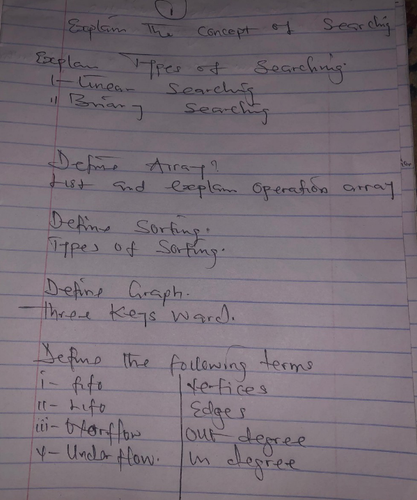 1
Explain The concept of Searching
Explan Types of Searching.
i- Linear Searching
ii Binary Searching
Define Array?
List and explain operation array
Define Sorting.
Types of Sorting.
Define Graph.
- three Keys Ward.
Define the following terms
i- fifo vertices
ii- Lifo Edges
iii- Overflow out degree
v- Underflow. in degree